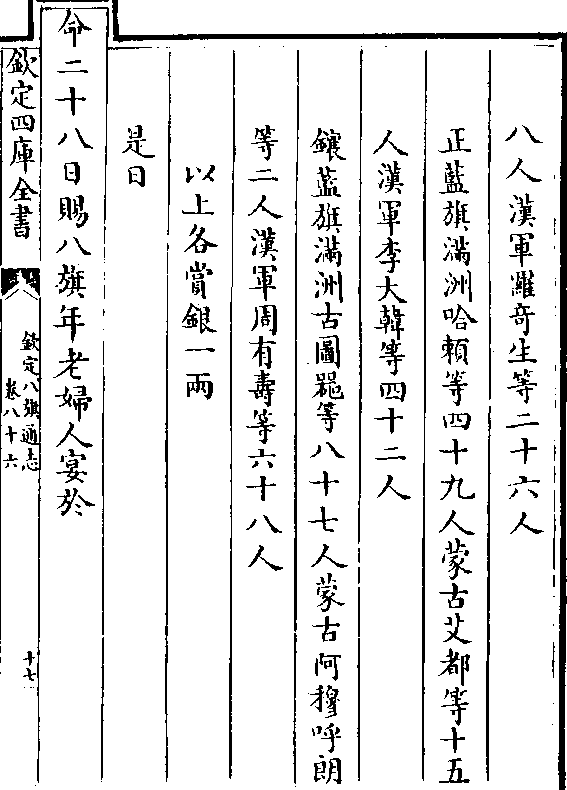 八人漢軍羅竒生等二十六人
正藍旗滿洲哈賴等四十九人蒙古艾都等十五
人漢軍李大韓等四十二人
鑲藍旗滿洲古圖㔶等八十七人蒙古阿穆呼朗
等二人漢軍周有壽等六十八人
以上各賞銀一兩
是日
命二十八日賜八旗年老婦人宴於
欽定四庫全書
欽定八旗通志
卷八十六
十七